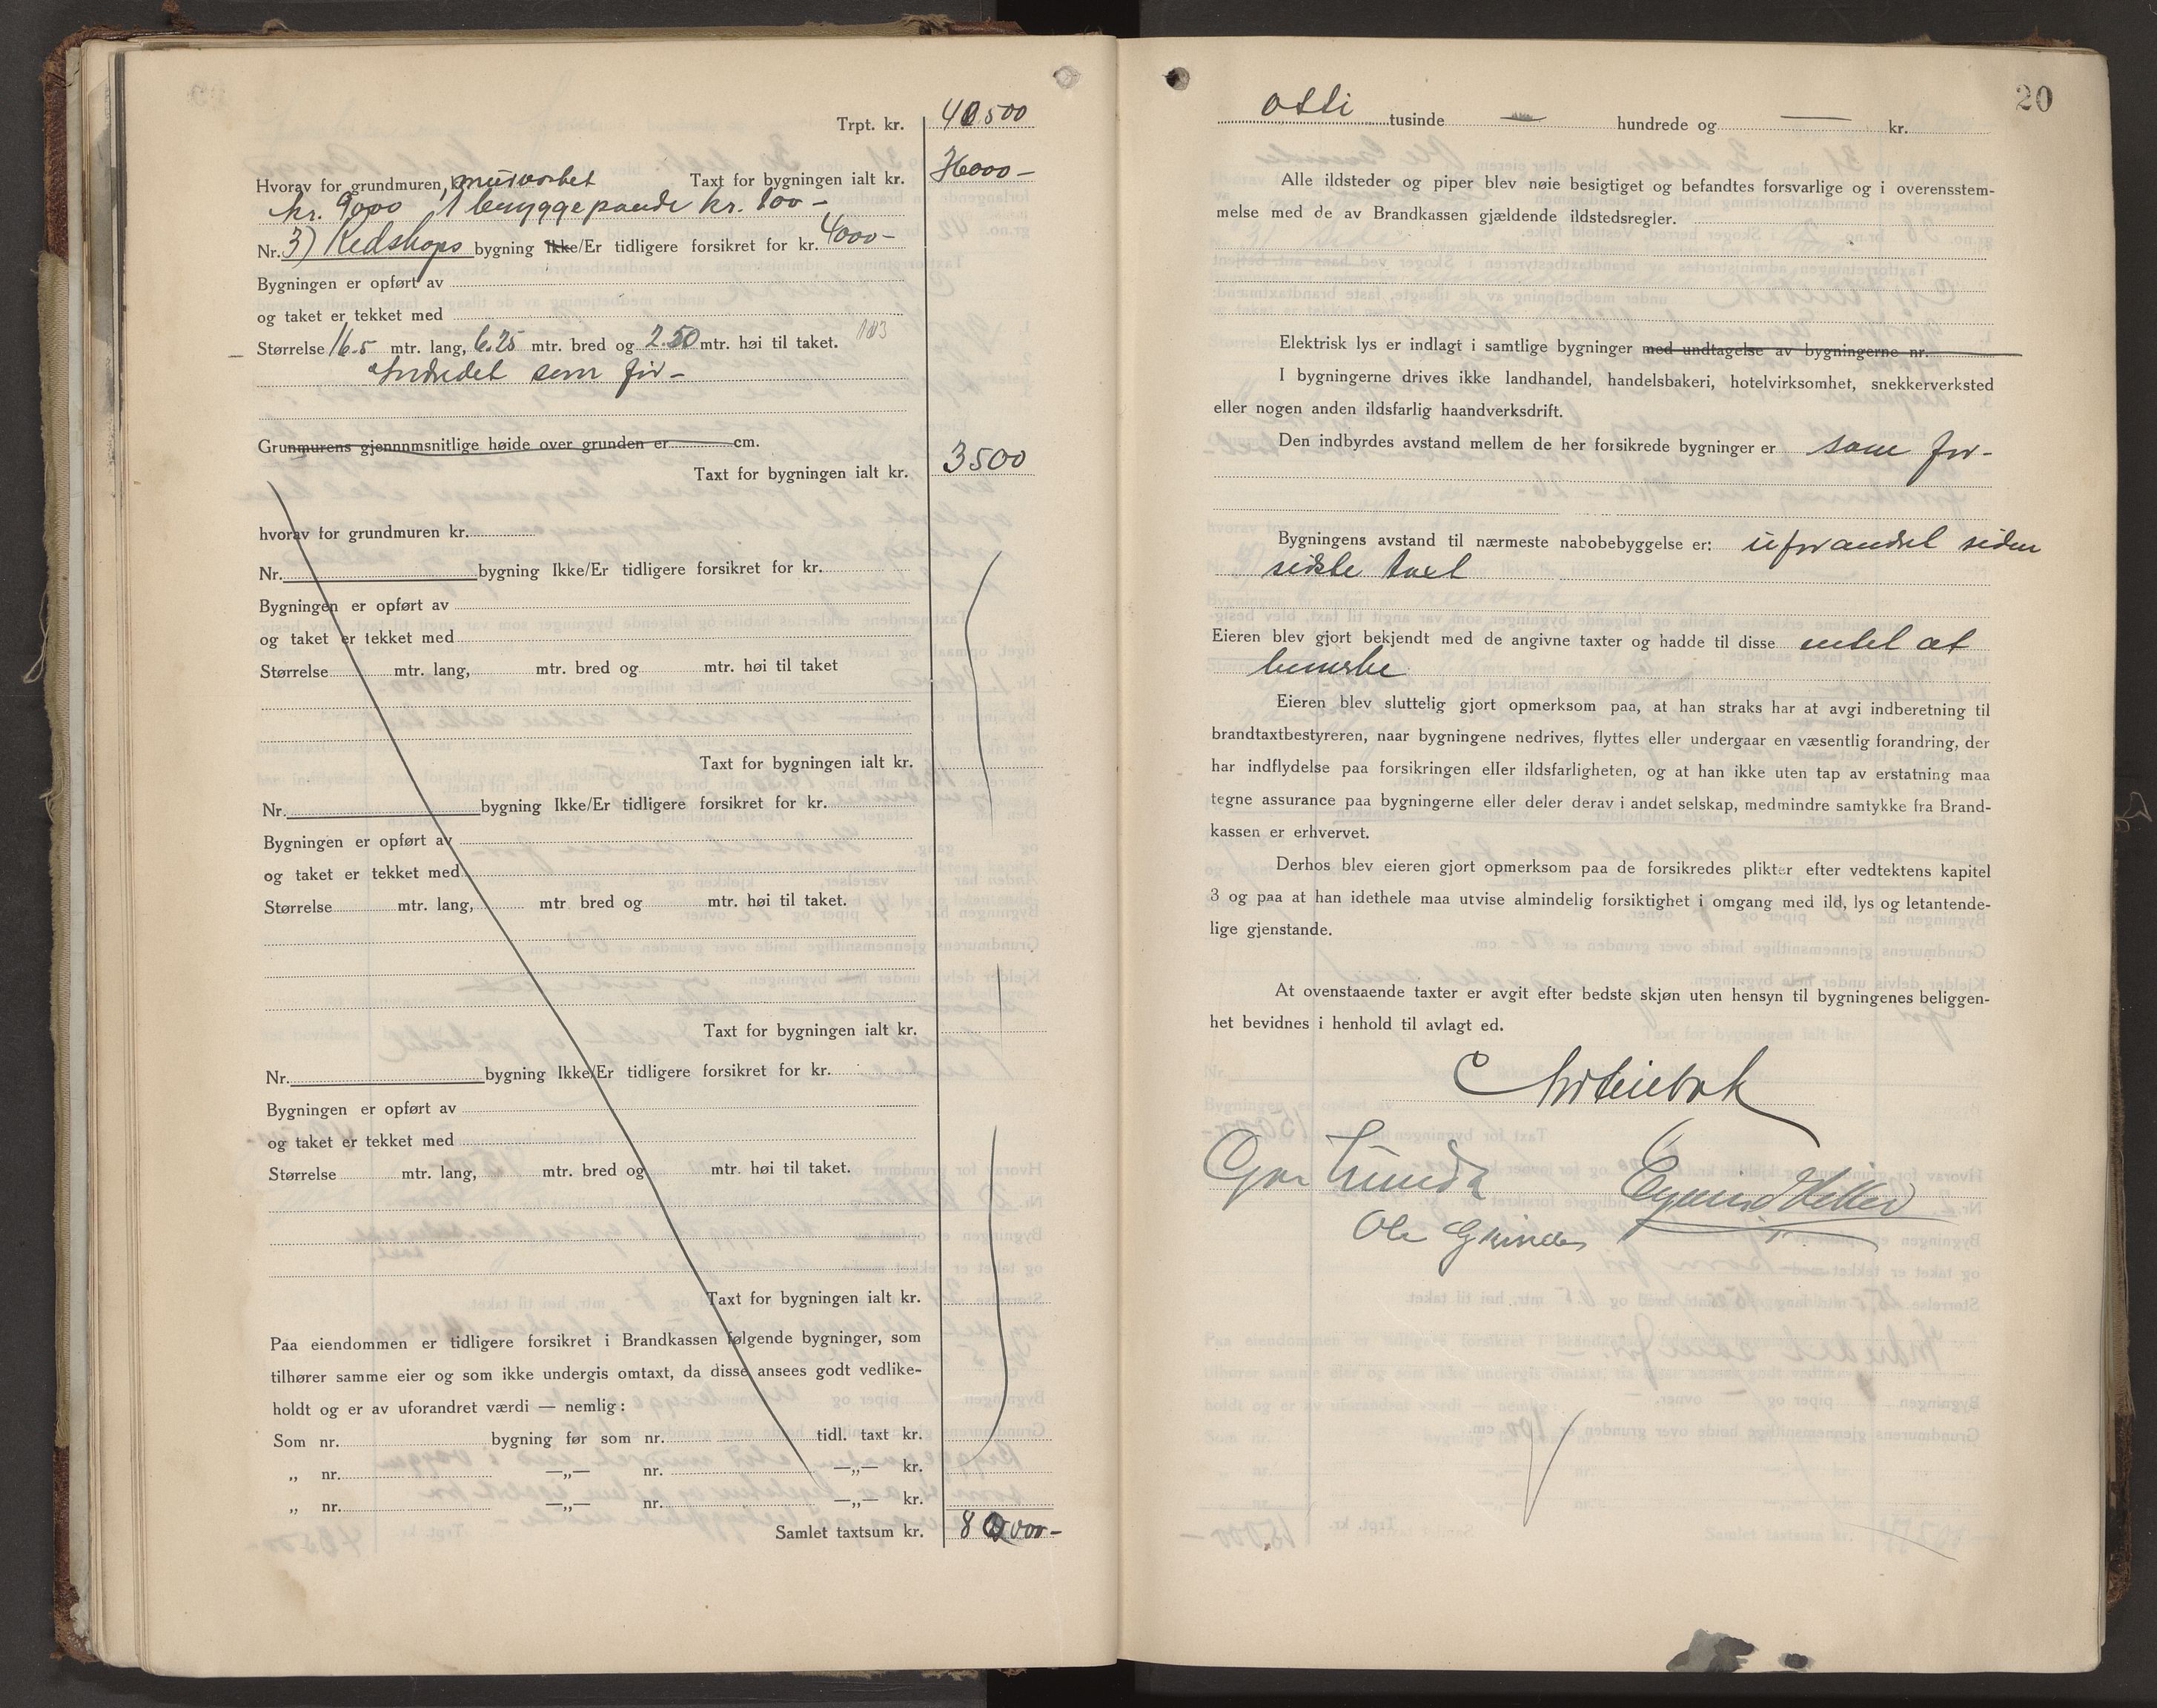 Trpt. kr. 40500
Hvorav for grundmuren, murarbet Taxt for bygningen ialt kr. 36000 –
kr. 9000 1 bryggepande kr. 100 –
Nr. 3) Redskaps bygning Ikke/Er tidligere forsikret for kr. 4000 –
Bygningen er opført av
og taket er tekket med
Størrelse 16.5 mtr. lang, 6.25 mtr. bred og 2.50 mtr. høi til taket. 103
Indredet som før –
Grunmurens gjennnmsnitlige høide over grunden er cm.
Taxt for bygningen ialt kr. 3500
hvorav for grundmuren kr.
Nr. bygning Ikke/Er tidligere forsikret for kr.
Bygningen er opført av
og taket er tekket med
Størrelse mtr. lang, mtr. bred og mtr. høi til taket
Taxt for bygningen ialt kr.
Nr. bygning Ikke/Er tidligere forsikret for kr.
Bygningen er opført av
og taket er tekket med
Størrelse mtr. lang, mtr bred og mtr. høi til taket.
Taxt for bygningen ialt kr.
Nr. bygning Ikke/Er tidligere forsikret for kr.
Bygningen er opført av
og taket er tekket med
Størrelse mtr. lang, mtr. bred og mtr. høi til taket.
Taxt for bygningen ialt kr.
Paa eiendommen er tidligere forsikret i Brandkassen følgende bygninger, som
tilhører samme eier og som ikke undergis omtaxt, da disse ansees godt vedlike-
holdt og er av uforandret værdi — nemlig:
Som nr. bygning før som nr. tidl. taxt kr.
„ nr. —„— nr. —„— kr.
„ nr. —„— nr. —„— kr.
Samlet taxtsum kr. 80000 –
20
otti tusinde — hundrede og — kr.
Alle ildsteder og piper blev nøie besigtiget og befandtes forsvarlige og i overensstem-
melse med de av Brandkassen gjældende ildstedsregler.
Elektrisk lys er indlagt i samtlige bygninger med undtagelse av bygningerne nr.
I bygningerne drives ikke landhandel, handelsbakeri, hotelvirksomhet, snekkerverksted
eller nogen anden ildsfarlig haandverksdrift.
Den indbyrdes avstand mellem de her forsikrede bygninger er som før –
Bygningens avstand til nærmeste nabobebyggelse er: uforandret siden
sidste taxt
Eieren blev gjort bekjendt med de angivne taxter og hadde til disse intet at
bemerke
Eieren blev sluttelig gjort opmerksom paa, at han straks har at avgi indberetning til
brandtaxtbestyreren, naar bygningene nedrives, flyttes eller undergaar en væsentlig forandring, der
har indflydelse paa forsikringen eller ildsfarligheten, og at han ikke uten tap av erstatning maa
tegne assurance paa bygningerne eller deler derav i andet selskap, medmindre samtykke fra Brand-
kassen er erhvervet.
Derhos blev eieren gjort opmerksom paa de forsikredes plikter efter vedtektens kapitel
3 og paa at han idethele maa utvise almindelig forsiktighet i omgang med ild, lys og letantende-
lige gjenstande.
At ovenstaaende taxter er avgit efter bedste skjøn uten hensyn til bygningenes beliggen-
het bevidnes i henhold til avlagt ed.
Ole